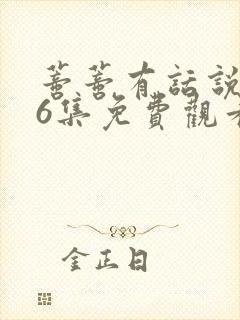 蓍蓍有話說
6集免費觀看
金正日